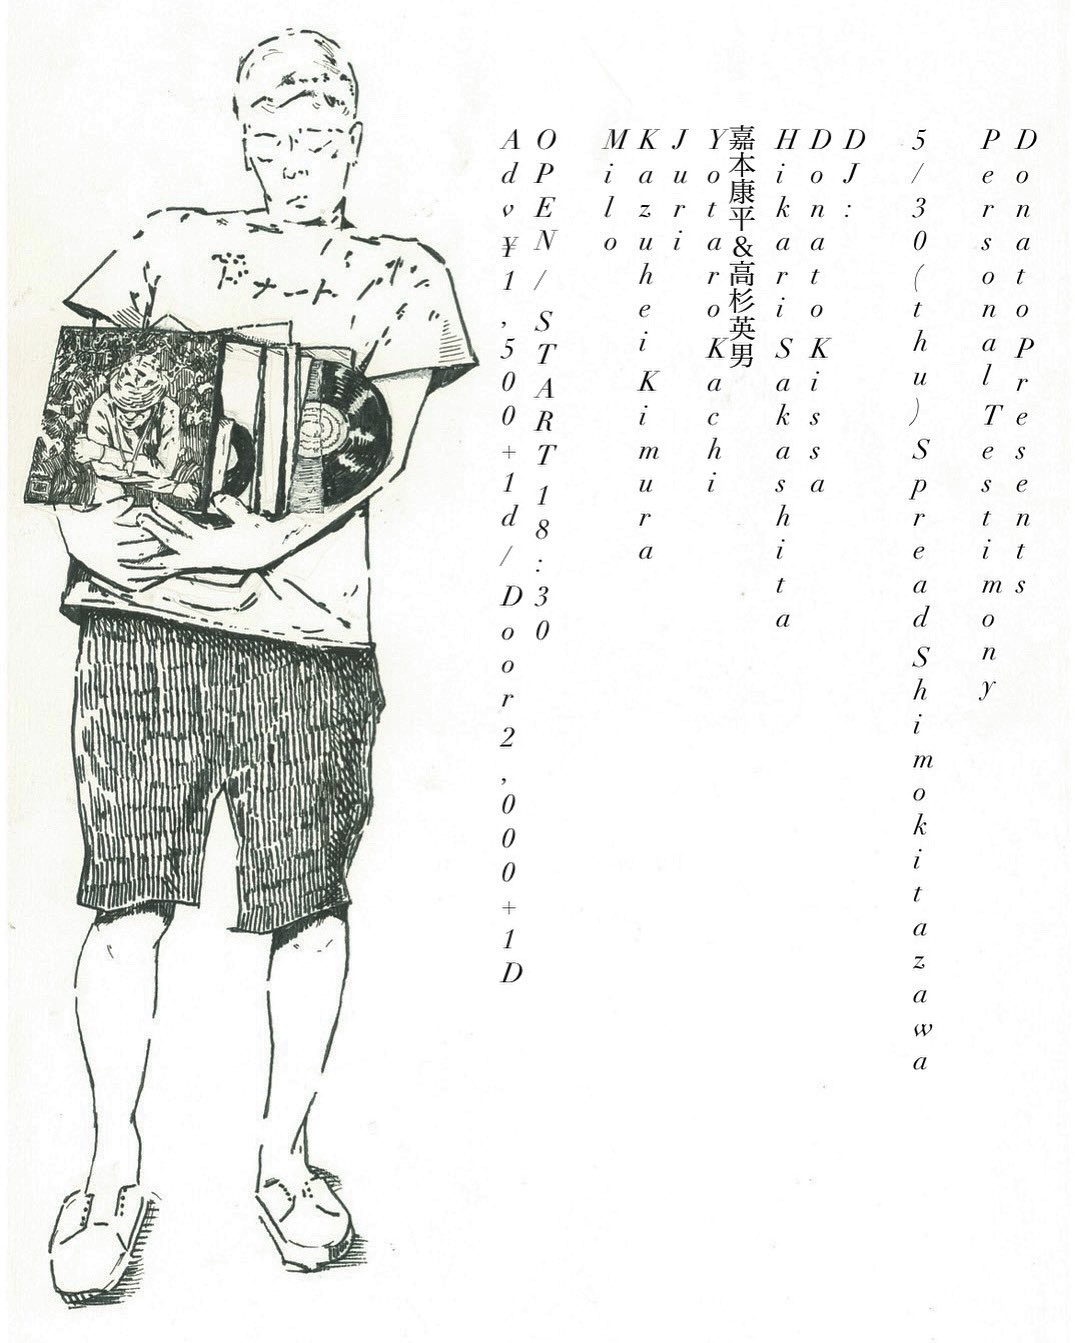 Donato Presents
Personal Testimony
5/30(thu) Spread Shimokitazawa
DJ:
Donato Kissa
Hikari Sakashita
嘉本康平&高杉英男
Yotaro Kachi
Juri
Kazuhei Kimura
Milo
OPEN/START 18:30
Adv¥1,500+1d/Door2,000+1D
ドナート